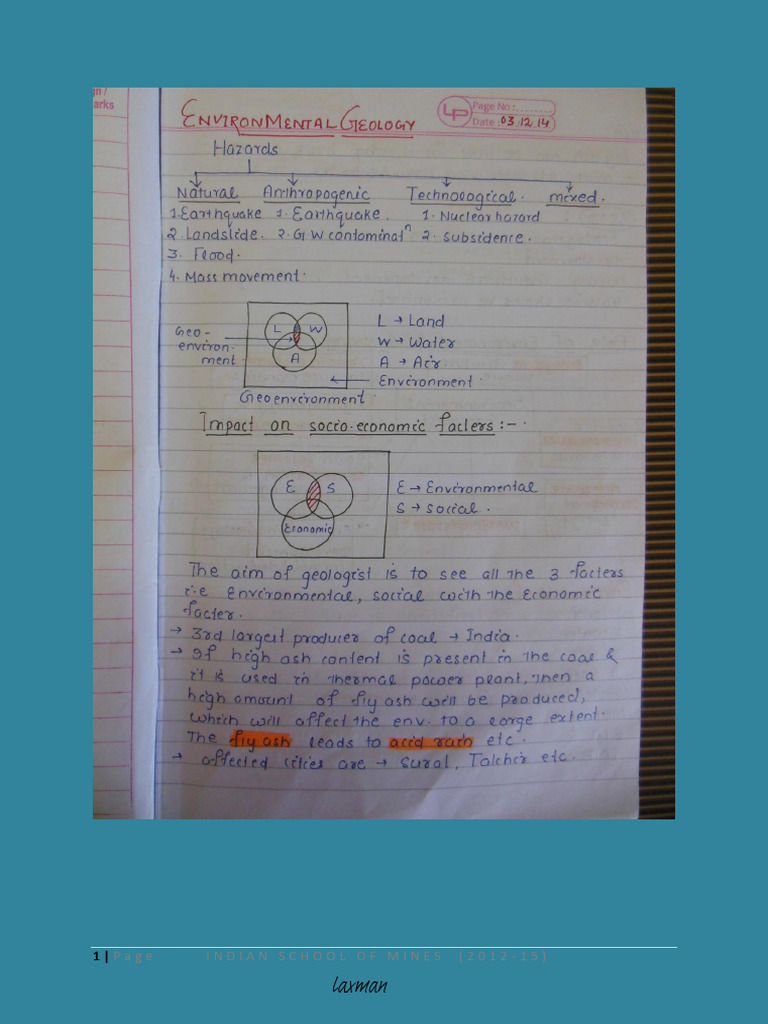 gn /
arks
ENVIRONMENTAL GEOLOGY
LP Page No :
Date : 03.12.14
Hazards
Natural Anthropogenic Technological. mixed.
1. Earthquake 1. Earthquake. 1. Nuclear hazard
2. Landslide. 2. GW contaminatn 2. subsidence.
3. Flood.
4. Mass movement.
L W A
Geo-
environ-
ment
L → Land
W → Water
A → Air
Environment.
Geoenvironment
Impact on socio-economic facters :-
E S
Economic
E → Environmental
S → social.
The aim of geologist is to see all the 3 facters
i.e Environmental, social with the Economic
facter.
→ 3rd largest producer of coal → India.
→ If high ash content is present in the coal &
it is used in thermal power plant, then a
high amount of fly ash will be produced,
which will affect the env. to a large extent.
The fly ash leads to acid rain etc.
→ affected cities are → Sural, Talchir etc.
1 | Page INDIAN SCHOOL OF MINES (2012-15)
laxman